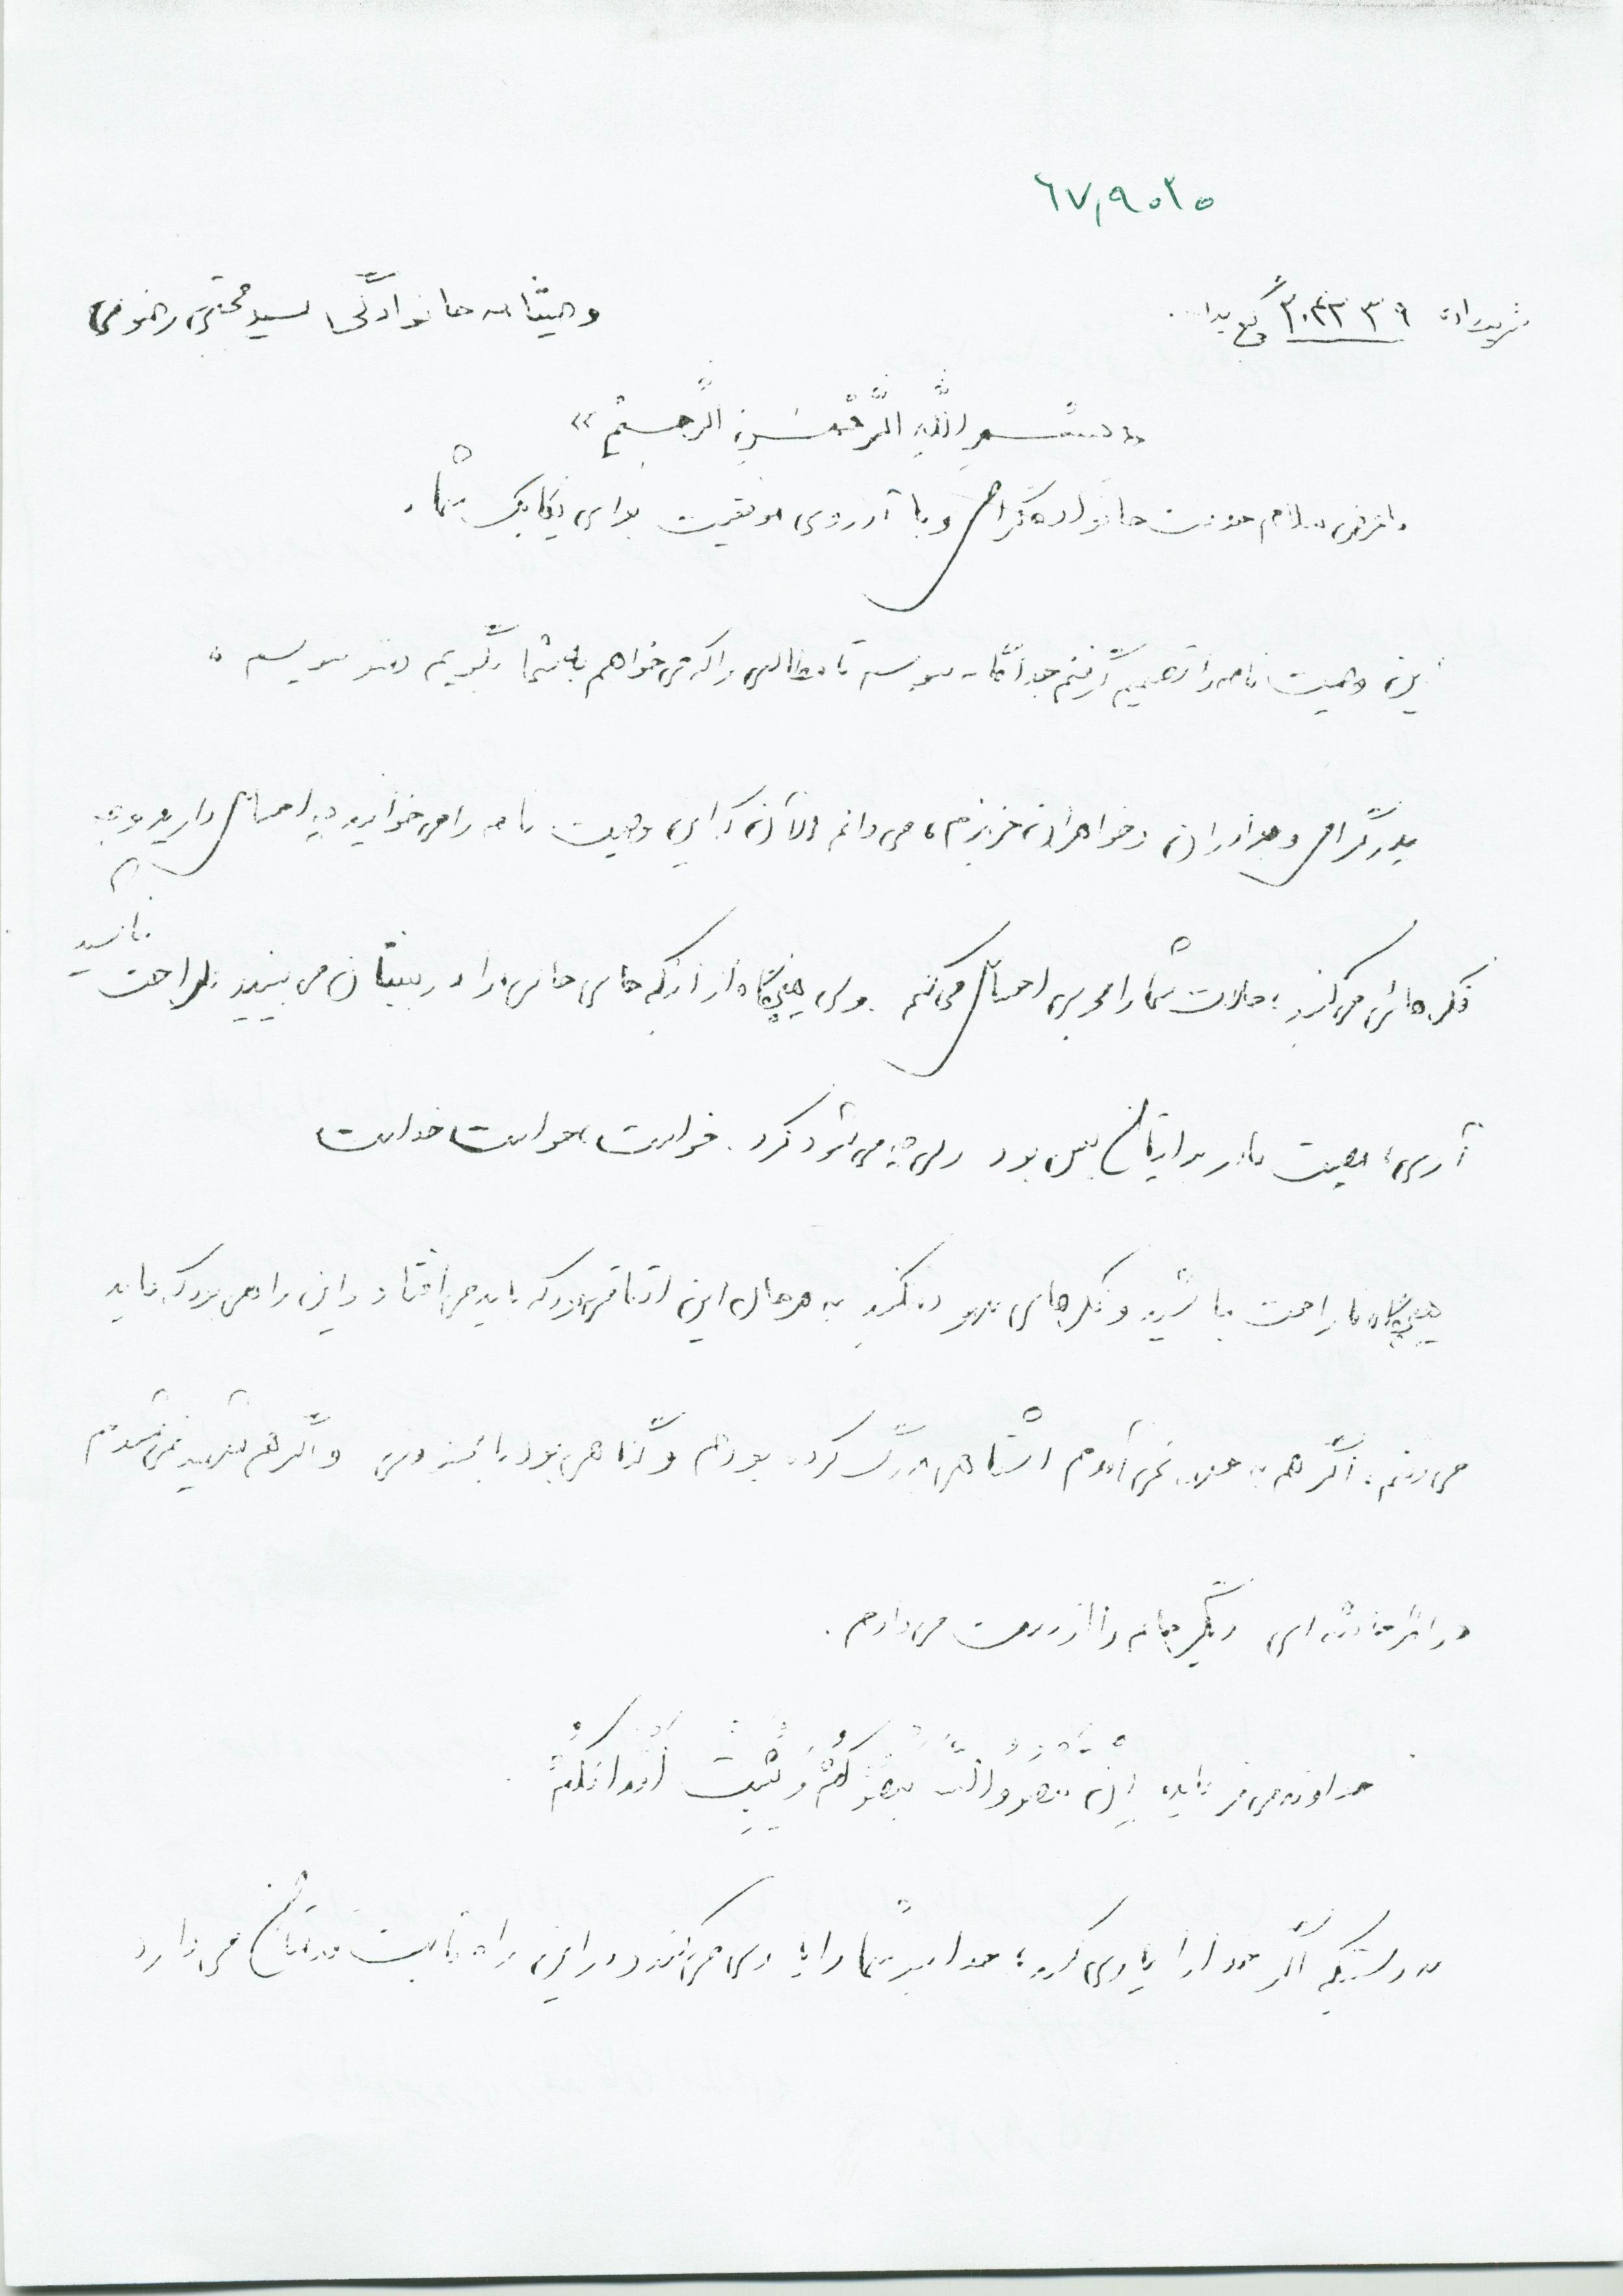 وصیتنامه خانوادگی سید مجتبی رضوی
«بسم اللهِ الرَّحْمنِ الرَّحیمْ»
با عرض سلام خدمت خانواده گرامی و با آرزوی موفقیت برای یکایک شما.
این وصیت نامه را تصمیم گرفتم جداگانه بنویسم تا مطالبی را که می‌خواهم به شما بگویم بنویسم.
پدر گرامی و برادران و خواهران عزیزم، می‌دانم الآن که این وصیت نامه را می‌خوانید چه احساسی دارید و چه
فکرهائی می‌کنید؛ حالات شما را بخوبی احساس می‌کنم. ولی هیچگاه از اینکه جای خالی مرا در بینتان می‌بینید ناراحت نباشید
آری، مصیبت مادر برایتان بس بود ولی چه می‌شود کرد. خواست، خواست خداست
هیچگاه ناراحت نباشید و فکرهای بیهوده نکنید به هر حال این اتفاقی بود که باید می‌افتاد و این راهی بود که باید
می‌رفتم. اگر هم به جبهه نمی‌آمدم اشتباهی بزرگ کرده بودم و گناهی بود نابخشودنی و اگر هم شهید نمی‌شدم
در اثر حادثه‌ای دیگر جانم را از دست می‌دادم.
خداوند می‌فرماید: اِنْ تَنْصُرُوا اللهَ یَنْصُرْکُمْ وَ یُثَبِّتْ اَقْدامَکُمْ
بدرستیکه اگر خدا را یاری کنید؛ خدا نیز شما را یاری می‌کند و در این راه ثابت قدمتان می‌دارد